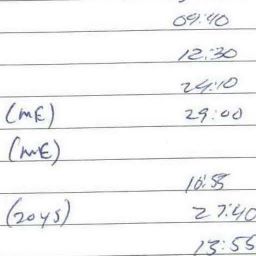 09:40
12:30
24:10
(ME) 29:00
(ME)
16:55
(20yS) 27:40
13:55